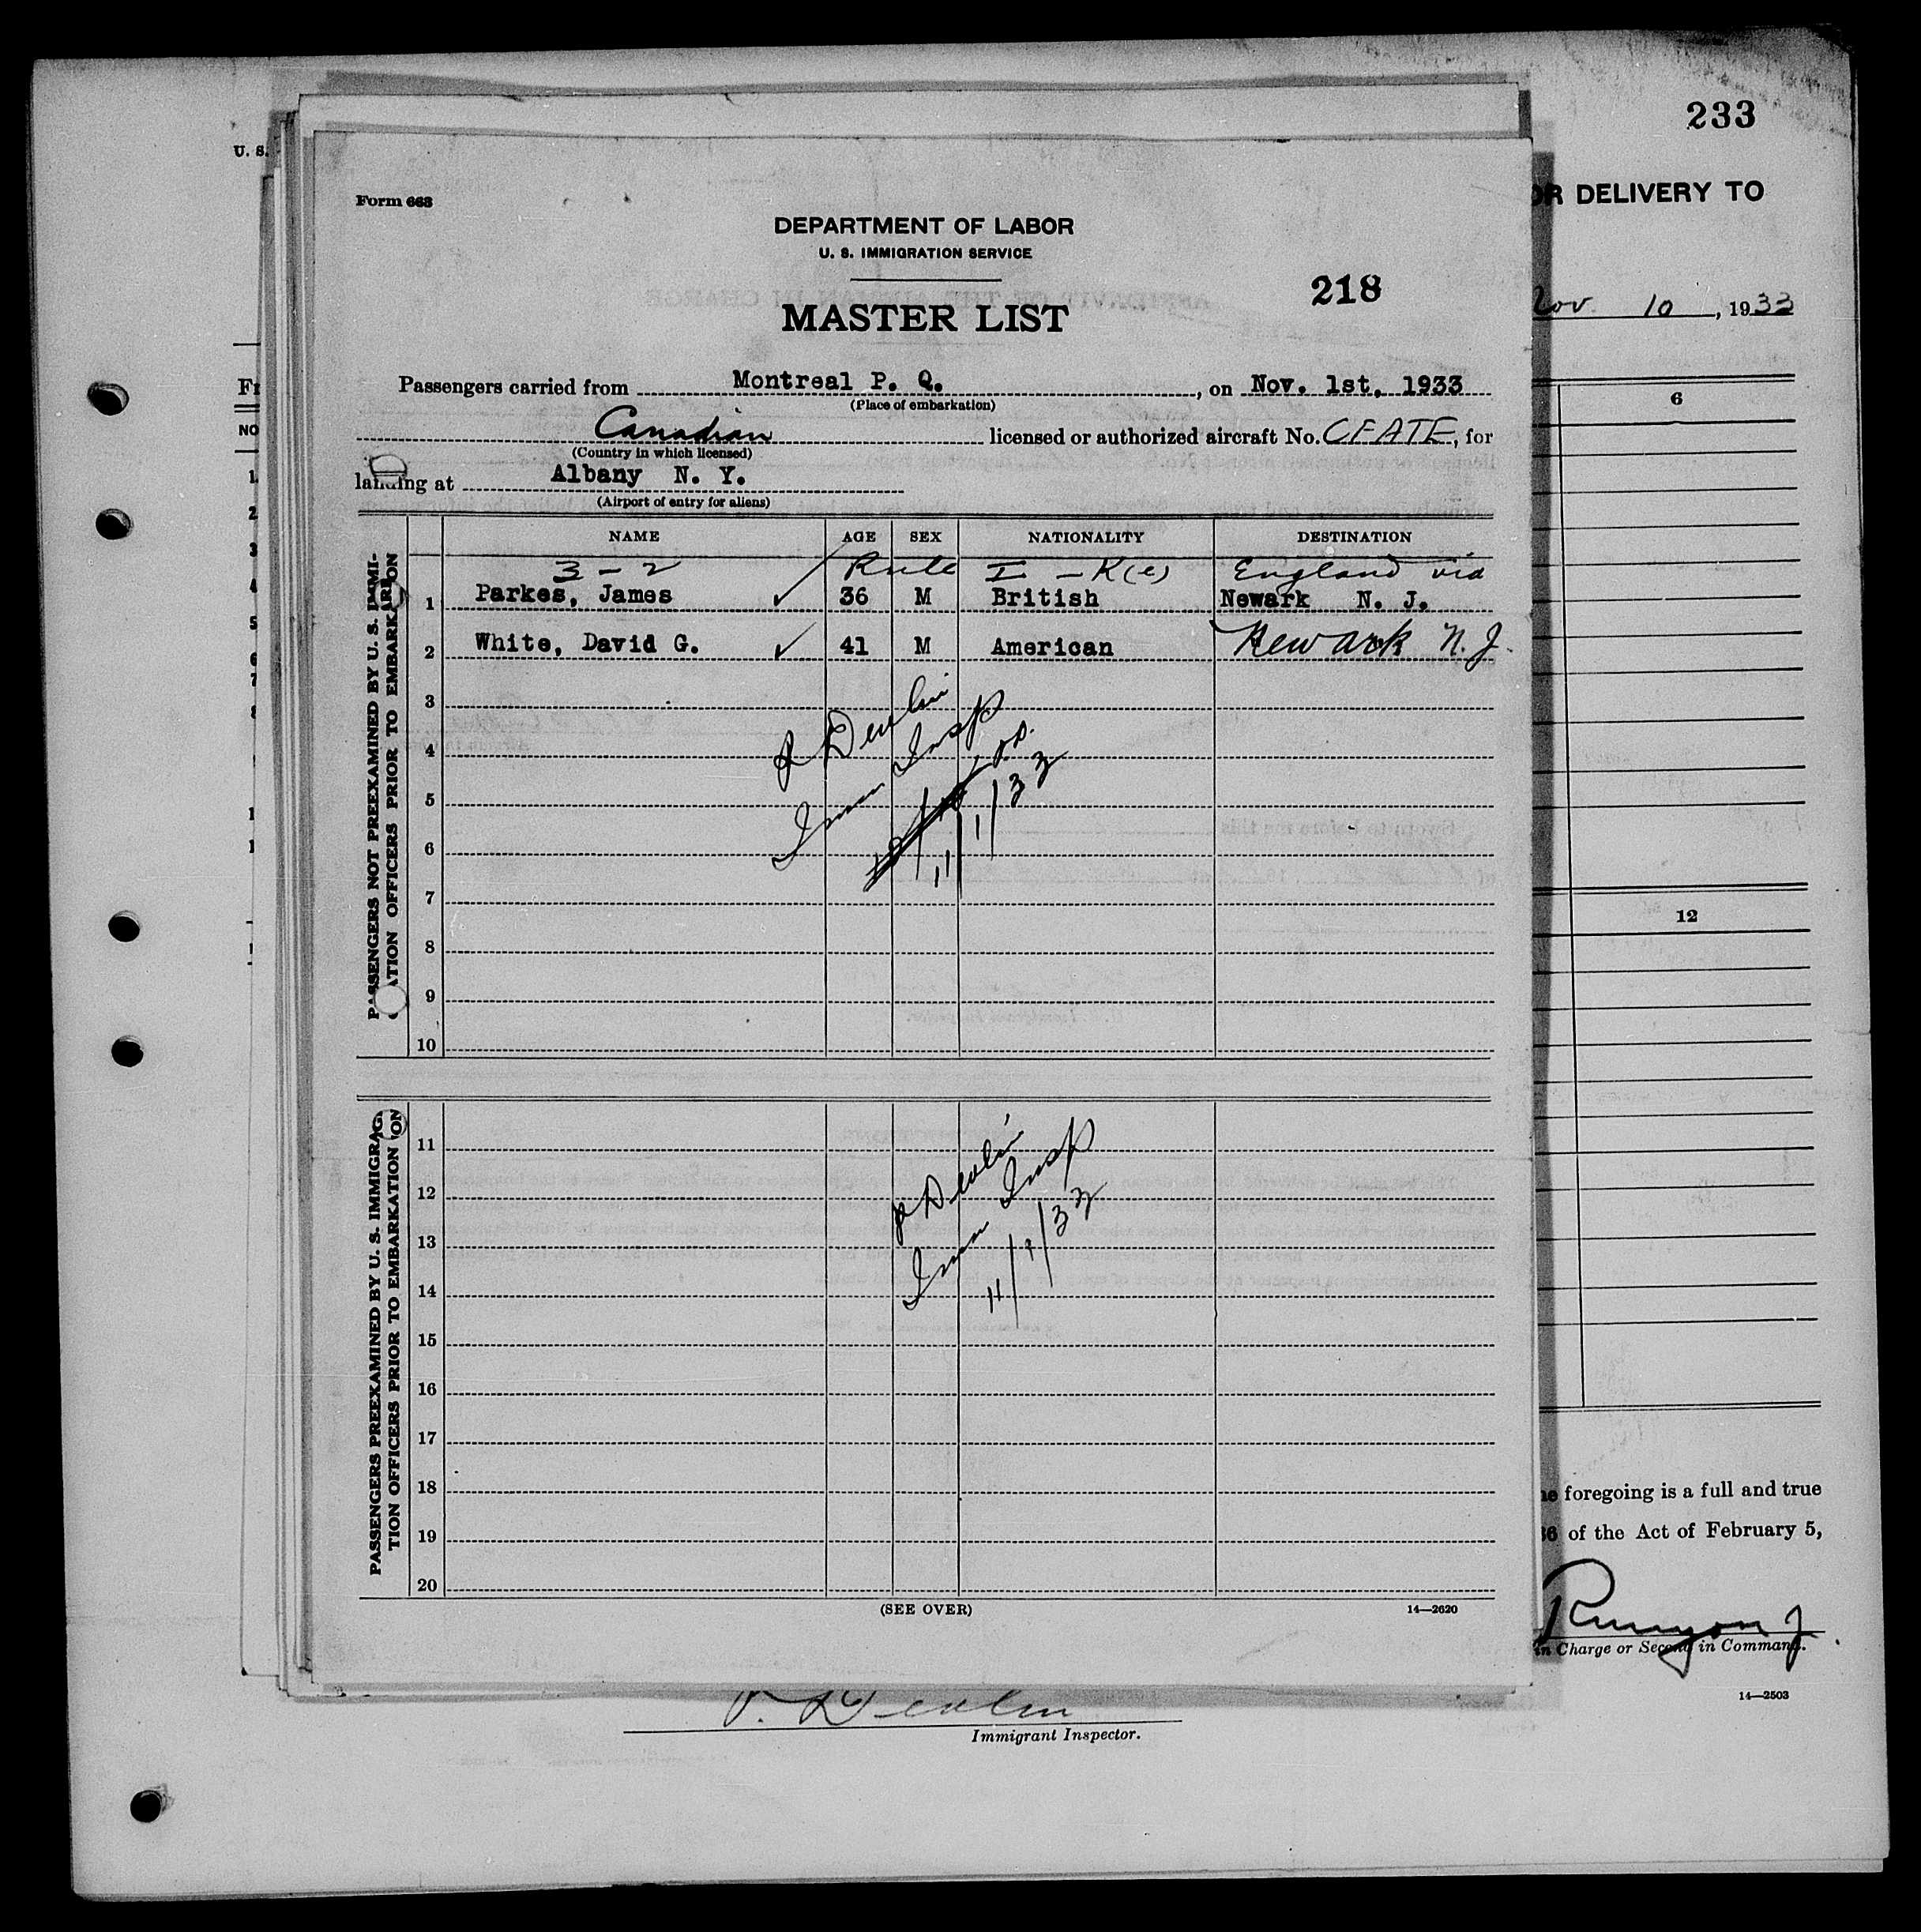 233
U. S.
OR DELIVERY TO
Form 663
DEPARTMENT OF LABOR
U. S. IMMIGRATION SERVICE
218
MASTER LIST
Nov. 10, 1933
Passengers carried from Montreal P. Q., on Nov. 1st, 1933
(Place of embarkation)
Canadian licensed or authorized aircraft No. CFATE, for
(Country in which licensed)
landing at Albany N. Y.
(Airport of entry for aliens)
NAME AGE SEX NATIONALITY DESTINATION
3 - 2 Rule I - K(e) England via
1 Parkes, James ✓ 36 M British Newark N. J.
2 White, David G. ✓ 41 M American Newark N. J.
3
4
5
6
7
8
9
10
PASSENGERS NOT PREEXAMINED BY U. S. IMMI-
GRATION OFFICERS PRIOR TO EMBARKATION
P Devlin
Imm Insp
11/1/33
11
12
13
14
15
16
17
18
19
20
PASSENGERS PREEXAMINED BY U. S. IMMIGRA-
TION OFFICERS PRIOR TO EMBARKATION
P Devlin
Imm Insp
11/1/33
(SEE OVER)
14—2620
6
12
foregoing is a full and true
36 of the Act of February 5,
Runyon J
in Charge or Second in Command.
14—2503
P. Devlin
Immigrant Inspector.